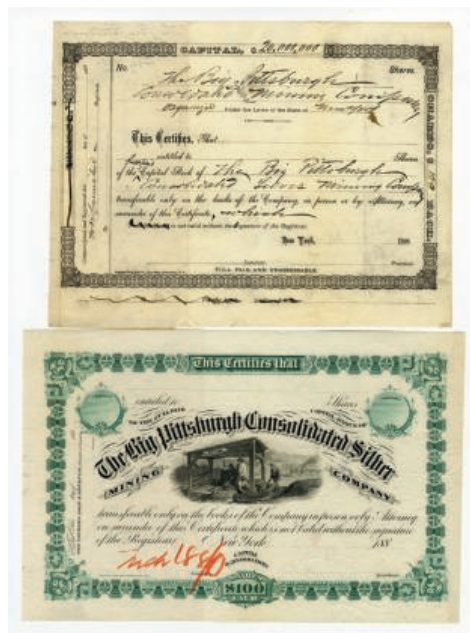 CAPITAL, $ 20,000,000
No.
Shares
The Big Pittsburgh
Consolidated Mining Company
Organized Under the Laws of the State of New York
This Certifies, That
entitled to Shares
of the Capital Stock of The Big Pittsburgh
Consolidated Silver Mining Comp
transferable only on the books of the Company, in person or by attorney, on
surrender of this Certificate, which
is not valid without the signature of the Registrar.
New York, 188
FULL PAID AND UNASSESSABLE
This Certifies that
entitled to Shares
CAPITAL STOCK OF
The Big Pittsburgh Consolidated Silver
MINING COMPANY
transferable only on the books of the Company in person or by Attorney
on surrender of this Certificate which is not valid without the signature
of the Registrar New York 188
$100
EACH